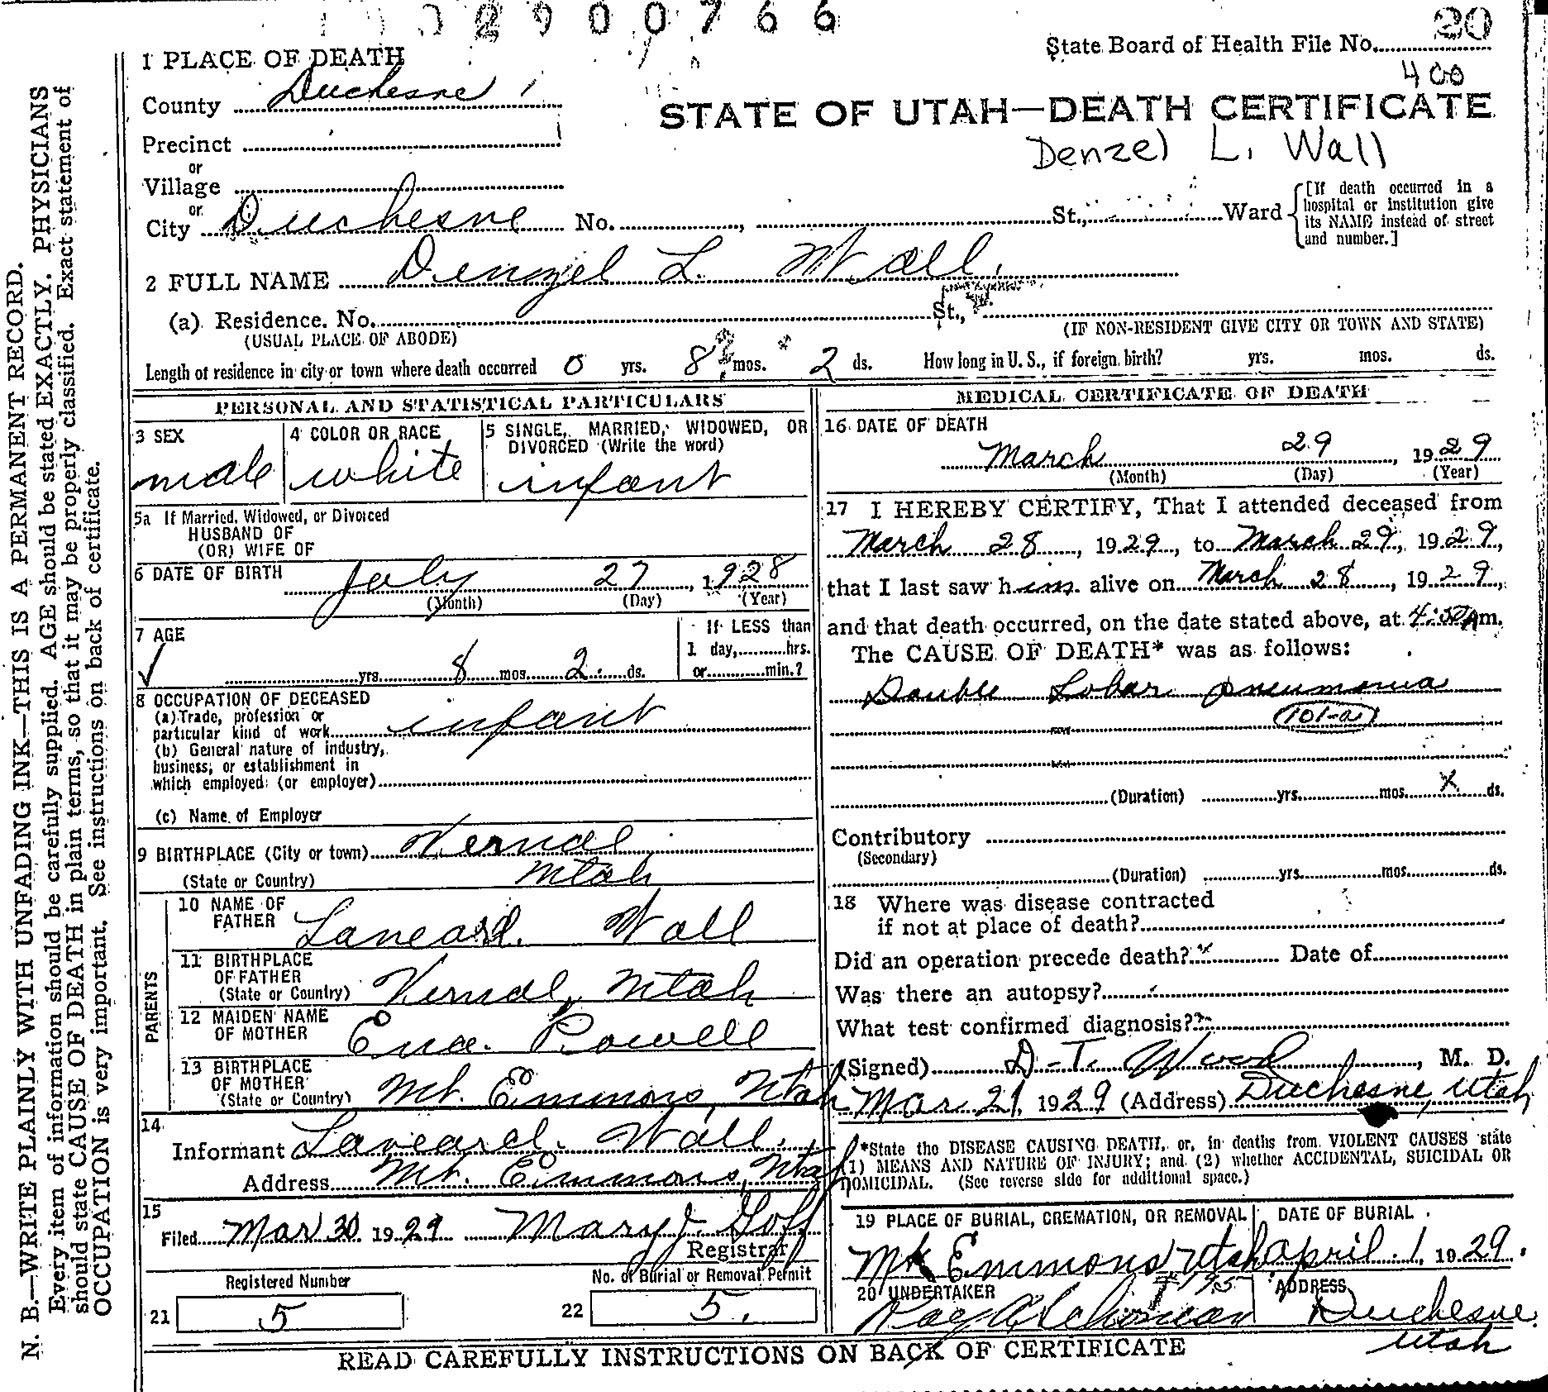 2900766
20
State Board of Health File No.
400
1 PLACE OF DEATH
County Duchesne
STATE OF UTAH—DEATH CERTIFICATE
Precinct
Denzel L. Wall
or
Village
or
City Duchesne No. , St., Ward
[If death occurred in a hospital or institution give its NAME instead of street and number.]
2 FULL NAME Denzel L. Wall
(a) Residence. No. St.,
(USUAL PLACE OF ABODE) (IF NON-RESIDENT GIVE CITY OR TOWN AND STATE)
Length of residence in city or town where death occurred 0 yrs. 8 mos. 2 ds. How long in U. S., if foreign birth? yrs. mos. ds.
PERSONAL AND STATISTICAL PARTICULARS
3 SEX male
4 COLOR OR RACE white
5 SINGLE, MARRIED, WIDOWED, OR DIVORCED (Write the word) infant
5a If Married, Widowed, or Divorced
HUSBAND OF
(OR) WIFE OF
6 DATE OF BIRTH July 27, 1928
(Month) (Day) (Year)
7 AGE
yrs. 8 mos. 2 ds.
If LESS than
1 day, hrs.
or min.?
8 OCCUPATION OF DECEASED
(a) Trade, profession or
particular kind of work infant
(b) General nature of industry,
business, or establishment in
which employed (or employer)
(c) Name of Employer
9 BIRTHPLACE (City or town) Vernal
(State or Country) Utah
PARENTS
10 NAME OF FATHER Laneard Wall
11 BIRTHPLACE OF FATHER
(State or Country) Vernal, Utah
12 MAIDEN NAME OF MOTHER Powell
13 BIRTHPLACE OF MOTHER
(State or Country) Mt. Emmons, Utah
14
Informant Laneard Wall
Address Mt. Emmons, Utah
15
Filed Mar 30 1929 Mary J. Goff
Registrar
Registered Number
21 5
No. of Burial or Removal Permit
22 5.
MEDICAL CERTIFICATE OF DEATH
16 DATE OF DEATH
March 29, 1929
(Month) (Day) (Year)
17 I HEREBY CERTIFY, That I attended deceased from
March 28, 1929, to March 29, 1929,
that I last saw him alive on March 28, 1929,
and that death occurred, on the date stated above, at m.
The CAUSE OF DEATH* was as follows:
Double Lobar pneumonia
101-a
(Duration) yrs. mos. X ds.
Contributory
(Secondary)
(Duration) yrs. mos. ds.
18 Where was disease contracted
if not at place of death?
Did an operation precede death? Date of
Was there an autopsy?
What test confirmed diagnosis?
(Signed) D. T. Wood, M. D.
Mar 1929 (Address) Duchesne, Utah
*State the DISEASE CAUSING DEATH, or, in deaths from VIOLENT CAUSES state
(1) MEANS AND NATURE OF INJURY; and (2) whether ACCIDENTAL, SUICIDAL OR
HOMICIDAL. (See reverse side for additional space.)
19 PLACE OF BURIAL, CREMATION, OR REMOVAL
Mt Emmons Utah
DATE OF BURIAL
April 1 1929.
20 UNDERTAKER
ADDRESS
Duchesne
Utah
READ CAREFULLY INSTRUCTIONS ON BACK OF CERTIFICATE
N. B.—WRITE PLAINLY WITH UNFADING INK—THIS IS A PERMANENT RECORD.
Every item of information should be carefully supplied. AGE should be stated EXACTLY. PHYSICIANS
should state CAUSE OF DEATH in plain terms, so that it may be properly classified. Exact statement of
OCCUPATION is very important. See instructions on back of certificate.